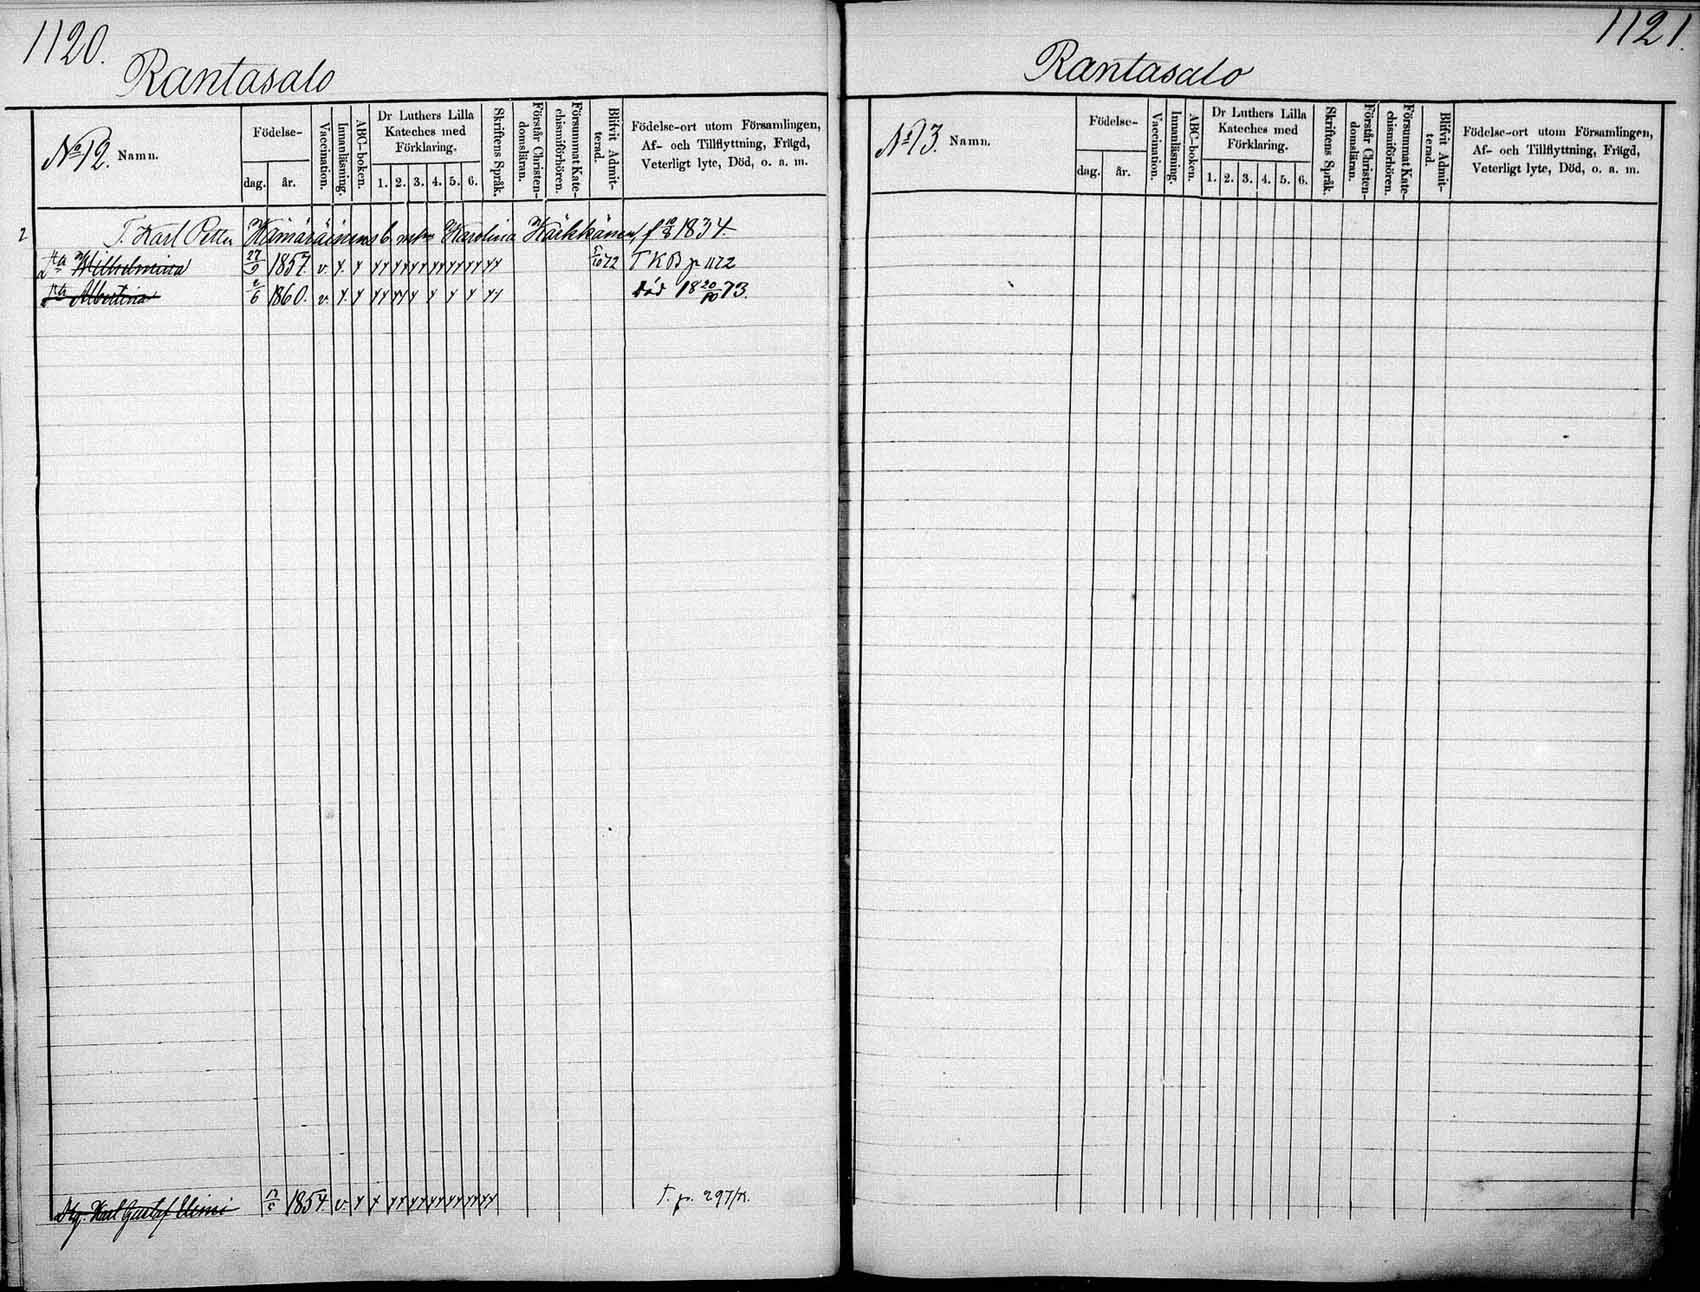 1120.
Rantasalo
No 12. Namn.
Födelse-
dag. år.
Vaccination.
Innanläsning.
ABC-boken.
Dr Luthers Lilla
Kateches med
Förklaring.
1. 2. 3. 4. 5. 6.
Skriftens Språk.
Förstår Christen-
domsläran.
Försummat Kate-
chismiförhören.
Blifvit Admit-
terad.
Födelse-ort utom Församlingen,
Af- och Tillflyttning, Frägd,
Veterligt lyte, Död, o. a. m.
2 T. Karl Petter Hämäräinens b. Karolina Kärkkänen, f 1834.
Wilhelmina 27/9 1857. v. 72 T K B p 1172
Albertina 2/6 1860. v. död 18 20/10 73.
Karl Gustaf 1854. v. T. p. 297/K.
1121.
Rantasalo
No 13. Namn.
Födelse-
dag. år.
Vaccination.
Innanläsning.
ABC-boken.
Dr Luthers Lilla
Kateches med
Förklaring.
1. 2. 3. 4. 5. 6.
Skriftens Språk.
Förstår Christen-
domsläran.
Försummat Kate-
chismiförhören.
Blifvit Admit-
terad.
Födelse-ort utom Församlingen,
Af- och Tillflyttning, Frägd,
Veterligt lyte, Död, o. a. m.